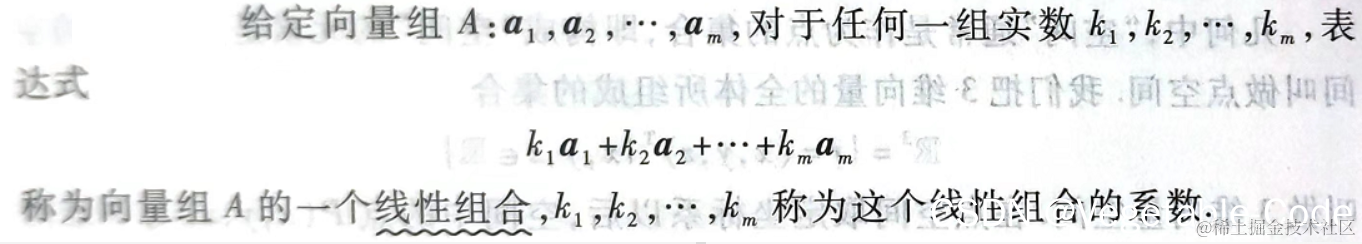 给定向量组 A:a₁,a₂,⋯,aₘ,对于任何一组实数 k₁,k₂,⋯,kₘ,表
达式
k₁a₁+k₂a₂+⋯+kₘaₘ
称为向量组 A 的一个线性组合,k₁,k₂,⋯,kₘ 称为这个线性组合的系数.
@稀土掘金技术社区